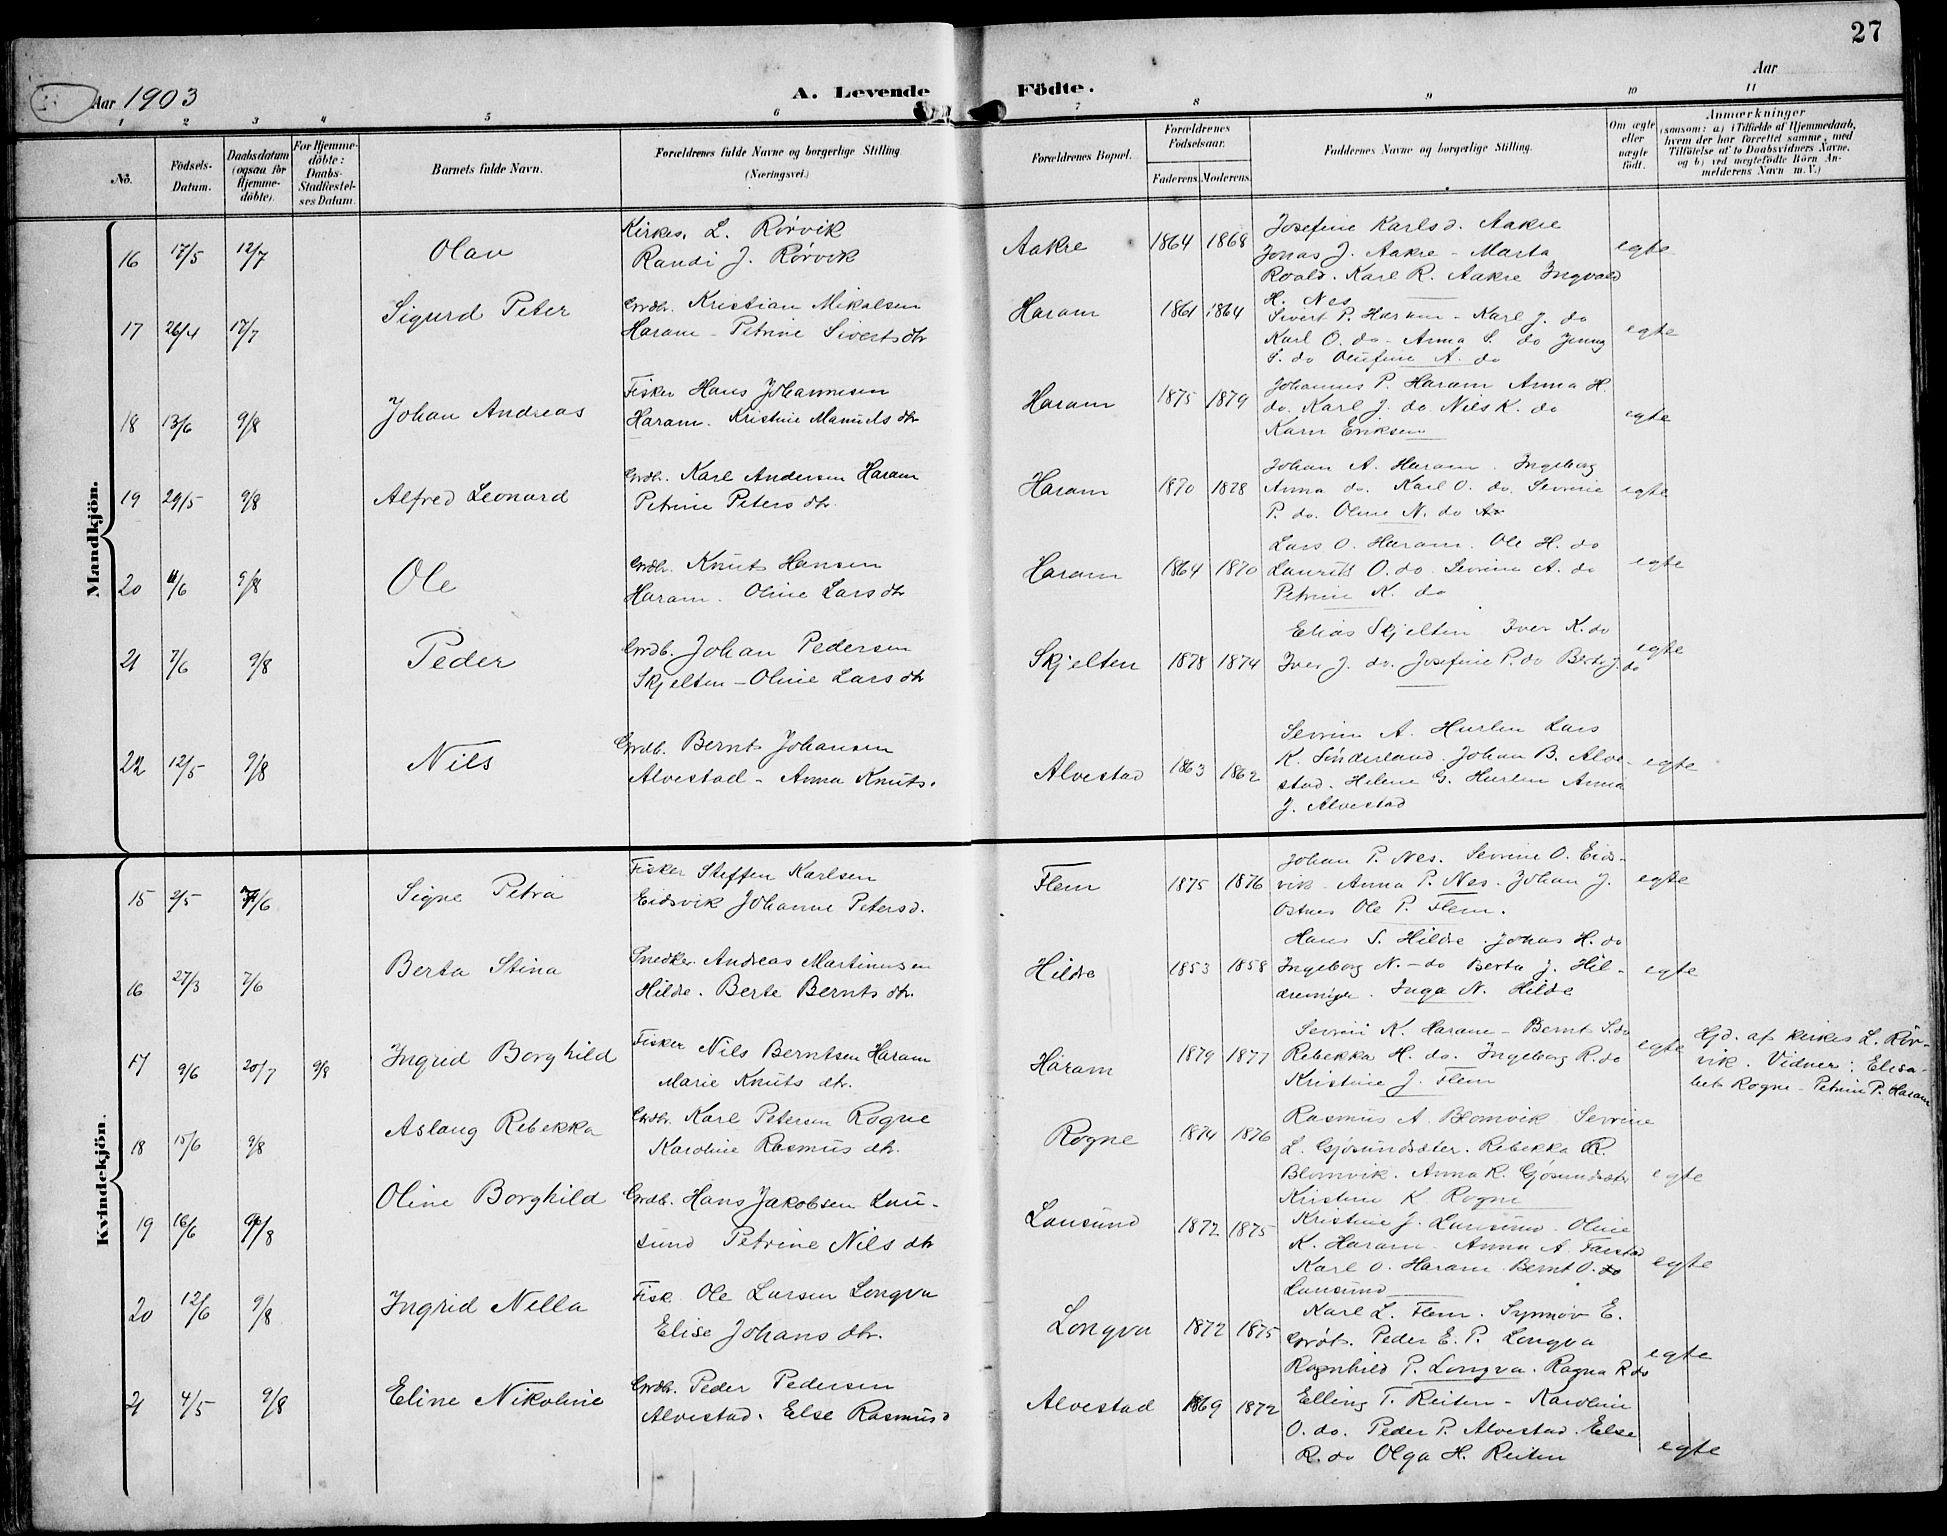 27
Aar 1903
A. Levende Födte.
Aar
1 2 3 4 5 6 7 8 9 10 11
No.
Födsels-Datum.
Daabsdatum (ogsaa for Hjemme-döbte).
For Hjemme-döbte: Daabs-Stadfæstel-ses Datum.
Barnets fulde Navn.
Forældrenes fulde Navne og borgerlige Stilling (Næringsvei.)
Forældrenes Bopæl.
Forældrenes Födselsaar.
Faderens. Moderens.
Faddernes Navne og borgerlige Stilling.
Om ægte eller uægte födt.
Anmærkninger
(saasom: a) i Tilfælde af Hjemmedaab, hvem der har forrettet samme, med Tilföielse af to Daabsvidners Navne, og b) ved uægtefödte Börn An-melderens Navn m.V.)
Mandkjön.
16 17/5 12/7 Olav
Kirkes. L. Rørvik
Randi J. Rørvik
Aakre 1864 1868
Josefine Karlsd. Aakre
Jonas J. Aakre - Marta
Roald. Karl R. Aakre Ingvald
H. Nes
egte
17 26/4 12/7 Sigurd Peter
Grdbr. Kristian Mikalsen
Haram - Petrine Siverts dtr
Haram 1861 1864
Sivert P. Haram - Karl J. do
Karl O. do - Anna S. do Jenny
S. do Olufine A. do
egte
18 13/6 9/8 Johan Andreas
Fisker Hans Johannesen
Haram. Kristine Manuels dtr
Haram 1875 1879
Johannes P. Haram Anna H.
do. Karl J. do. Nils K. do
Karn Eriksen
egte
19 29/5 9/8 Alfred Leonard
Grdbr. Karl Andersen Haram
Petrine Peters dtr.
Haram 1870 1878
Johan A. Haram. Ingeborg
Anna do. Karl O. do. Sevrine
P. do. Oline N. do
egte
20 11/6 9/8 Ole
Grdbr. Knut Hansen
Haram. Oline Lars dtr
Haram 1864 1870
Lars O. Haram. Ole H. do
Laurits O. do Sevrine A. do
Petrine K. do
egte
21 7/6 9/8 Peder
Grdb. Johan Pedersen
Skjelten - Oline Lars dtr
Skjelten 1878 1874
Elias Skjelten Iver K. do
Iver J. do. Josefine P. do Berte J. do
egte
22 12/5 9/8 Nils
Grdb. Bernt Johansen
Alvestad - Anna Knuts.
Alvestad 1863 1862
Sevrin A. Hurlen Lars
K. Sønderland. Johan B. Alve-
stad. Helene G. Hurlen Anna
J. Alvestad
egte
Kvindekjön.
15 2/5 7/6 Signe Petra
Fisker Steffen Karlsen
Eidsvik Johanne Petersd.
Flem 1875 1876
Johan P. Nes. Sevrine O. Eids-
vik - Anna P. Nes. Johan J.
Østnes Ole P. Flem.
egte
16 27/3 7/6 Berta Stina
Snedker. Andreas Martinusen
Hildre. Berte Bernts dtr.
Hildre 1853 1858
Hans S. Hildre. Johas H. do
Ingeborg N. - do Berta J. Hil-
dremyr. Inga N. Hildre
egte
17 9/6 20/7 9/8 Ingrid Borghild
Fisker Nils Berntsen Haram
Marie Knuts dtr.
Haram 1879 1877
Sevrin K. Haram - Bernt S. do
Rebekka H. do. Ingeborg R. do
Kristine J. Flem
egte
Hjd. af kirkes L. Rør-
vik. Vidner: Elisa-
bet Rogne - Petrine P. Haram
18 15/6 9/8 Aslaug Rebekka
Grdbr. Karl Petersen Rogne
Karoline Rasmus dtr.
Rogne 1874 1876
Rasmus A. Blomvik Sevrine
L. Gjøsundsæter. Rebekka R.
Blomvik. Anna R. Gjøsundsæter
Kristine K. Rogne
egte
19 16/6 9/8 Oline Borghild
Grdb. Hans Jakobsen Lau-
sund Petrine Nils dtr
Lausund 1872 1875
Kristine J. Lausund. Oline
K. Haram. Anna A. Farstad
Karl O. Haram. Bernt O. do
Lausund
egte
20 12/6 9/8 Ingrid Nella
Fisk. Ole Larsen Longva
Elise Johans dtr.
Longva 1872 1875
Karl L. Flem. Synnøv E.
Grøt. Peder E. P. Longva
Ragnhild P. Longva. Ragna R do
egte
21 4/5 9/8 Eline Nikoline
Grdb. Peder Pedersen
Alvestad. Else Rasmusd
Alvestad 1869 1872
Elling T. Reiten - Karoline
O. do. Peder P. Alvestad. Else
R. do Olga H. Reiten
egte